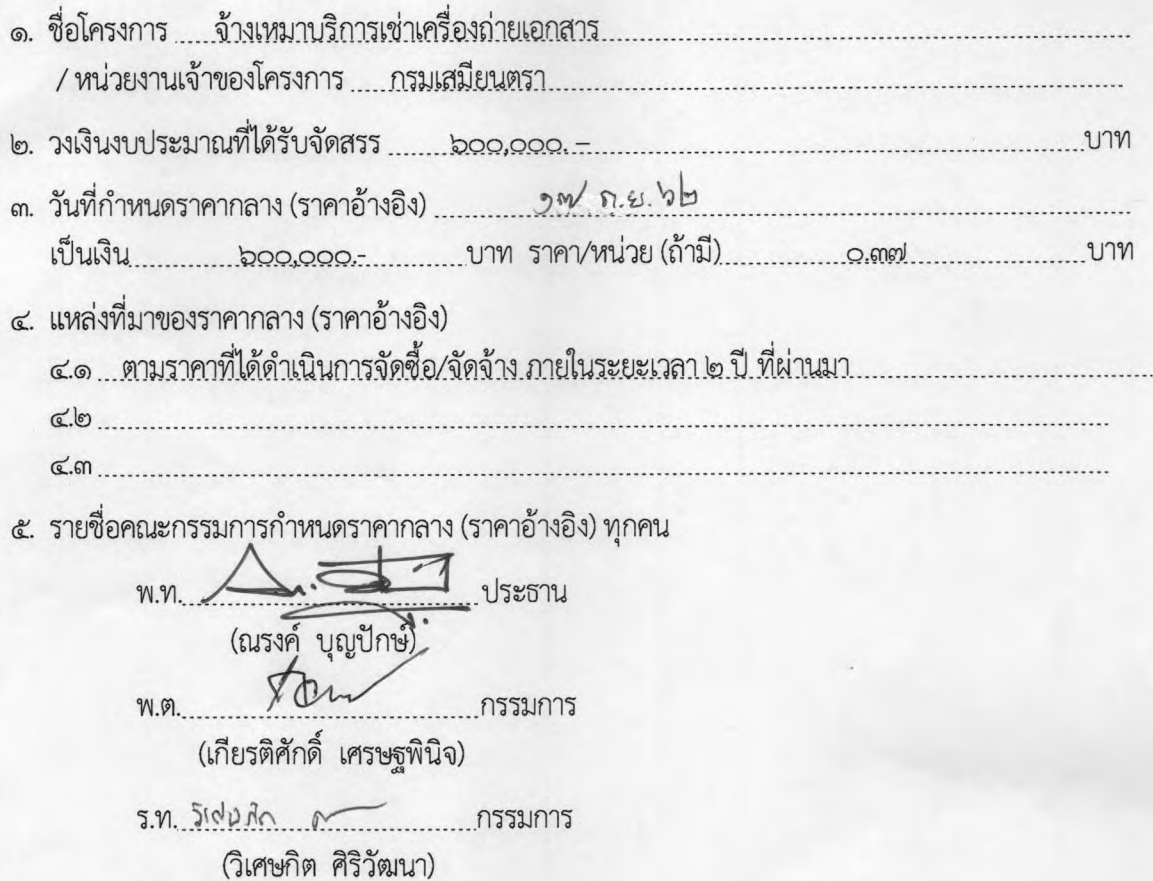 ๑. ชื่อโครงการ จ้างเหมาบริการเช่าเครื่องถ่ายเอกสาร
/ หน่วยงานเจ้าของโครงการ กรมเสมียนตรา
๒. วงเงินงบประมาณที่ได้รับจัดสรร ๖๐๐,๐๐๐.– บาท
๓. วันที่กำหนดราคากลาง (ราคาอ้างอิง) ๑๗ ก.ย. ๖๒
เป็นเงิน ๖๐๐,๐๐๐.- บาท ราคา/หน่วย (ถ้ามี) ๐.๓๗ บาท
๔. แหล่งที่มาของราคากลาง (ราคาอ้างอิง)
๔.๑ ตามราคาที่ได้ดำเนินการจัดซื้อ/จัดจ้าง ภายในระยะเวลา ๒ ปี ที่ผ่านมา
๔.๒
๔.๓
๕. รายชื่อคณะกรรมการกำหนดราคากลาง (ราคาอ้างอิง) ทุกคน
พ.ท. ประธาน
(ณรงค์ บุญปักษ์)
พ.ต. กรรมการ
(เกียรติศักดิ์ เศรษฐพินิจ)
ร.ท. กรรมการ
(วิเศษกิต ศิริวัฒนา)